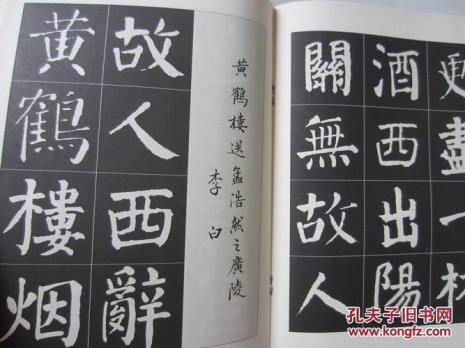 更盡一
酒西出陽
關無故人
黄鶴樓送孟浩然之廣陵
李白
故人西辭
黄鶴樓烟
孔夫子旧书网
www.kongfz.com